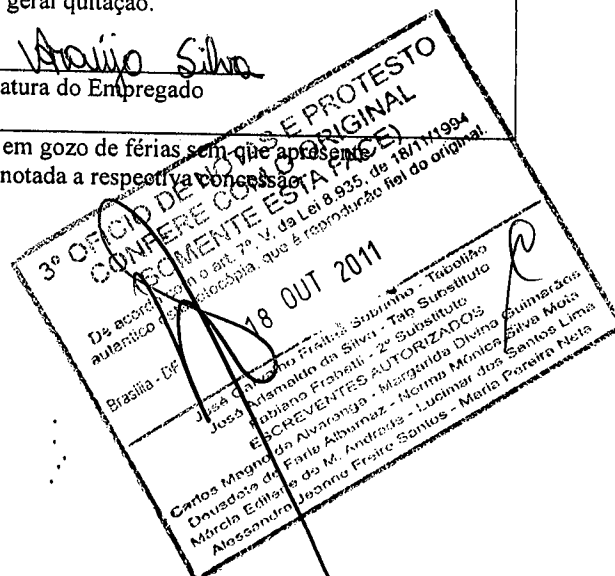 geral quitação.
Araújo Silva
atura do Empregado
em gozo de férias sem que apresente
notada a respectiva concessão.
3º OFÍCIO DE NOTAS E PROTESTO
CONFERE COM O ORIGINAL
(SOMENTE ESTA FACE)
De acordo com o art. 7º, V, da Lei 8.935, de 18/11/1994
autentico esta fotocópia, que é reprodução fiel do original.
Brasília - DF
18 OUT 2011
José Carvalho Freitas Sobrinho - Tabelião
José Arismaldo da Silva - Tab Substituto
Fabiano - 2º Substituto
ESCREVENTES AUTORIZADOS
Carlos Magno de Alvarenga - Margarida Divino Guimarães
Deusdete de Faria Albernaz - Norma Mônica Silva Maia
Márcia Edilene de M. Andrade - Lucimar dos Santos Lima
Alessandra Jeanne Freire Santos - Maria Pereira Neta